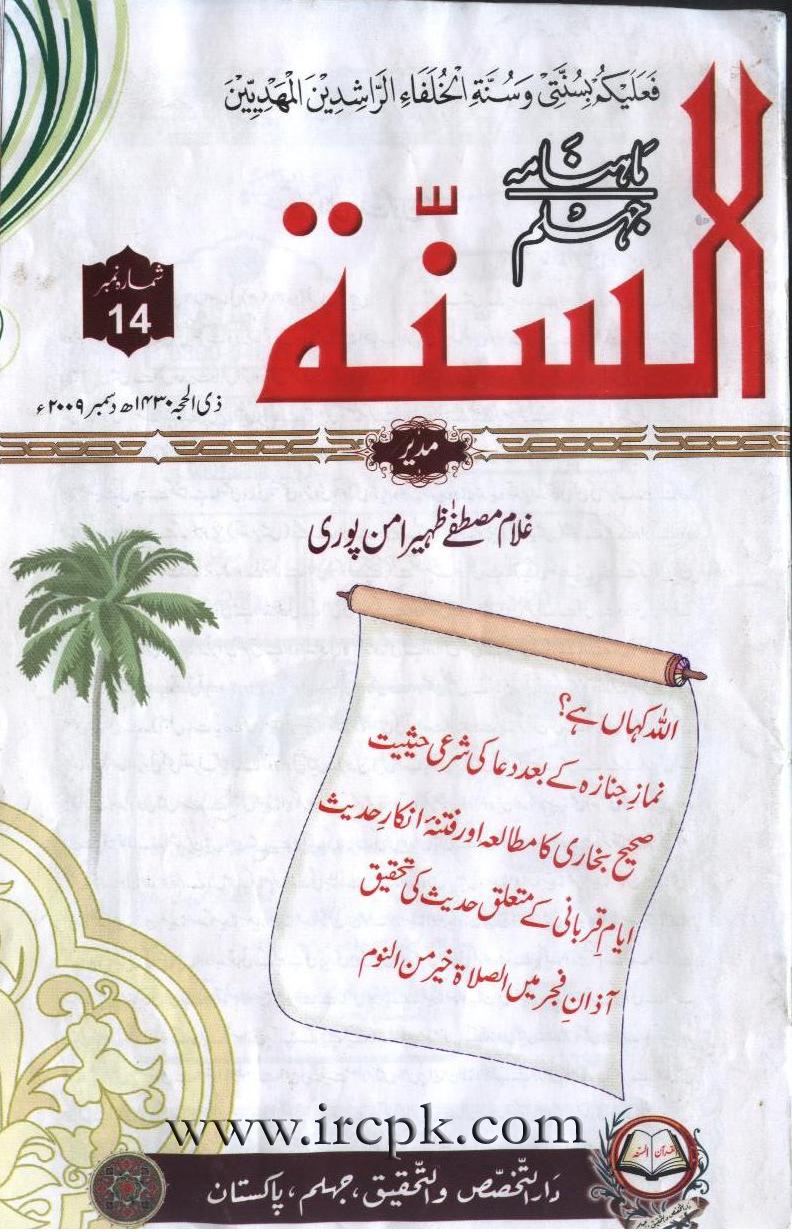 فَعَلَيْكُمْ بِسُنَّتِيْ وَسُنَّةِ الْخُلَفَاءِ الرَّاشِدِيْنَ الْمَهْدِيِّيْنَ
ماہنامہ
جہلم
السنّة
شمارہ نمبر
14
ذی الحجہ ۱۴۳۰ھ دسمبر ۲۰۰۹ء
مدیر
غلام مصطفےٰ ظہیر امن پوری
اللہ کہاں ہے؟
نمازِ جنازہ کے بعد دعا کی شرعی حیثیت
صحیح بخاری کا مطالعہ اور فتنۂ انکارِ حدیث
ایامِ قربانی کے متعلق حدیث کی تحقیق
آذانِ فجر میں الصلاۃ خیر من النوم
www.ircpk.com
القرآن السنة
دار التخصّص والتّحقیق، جہلم، پاکستان